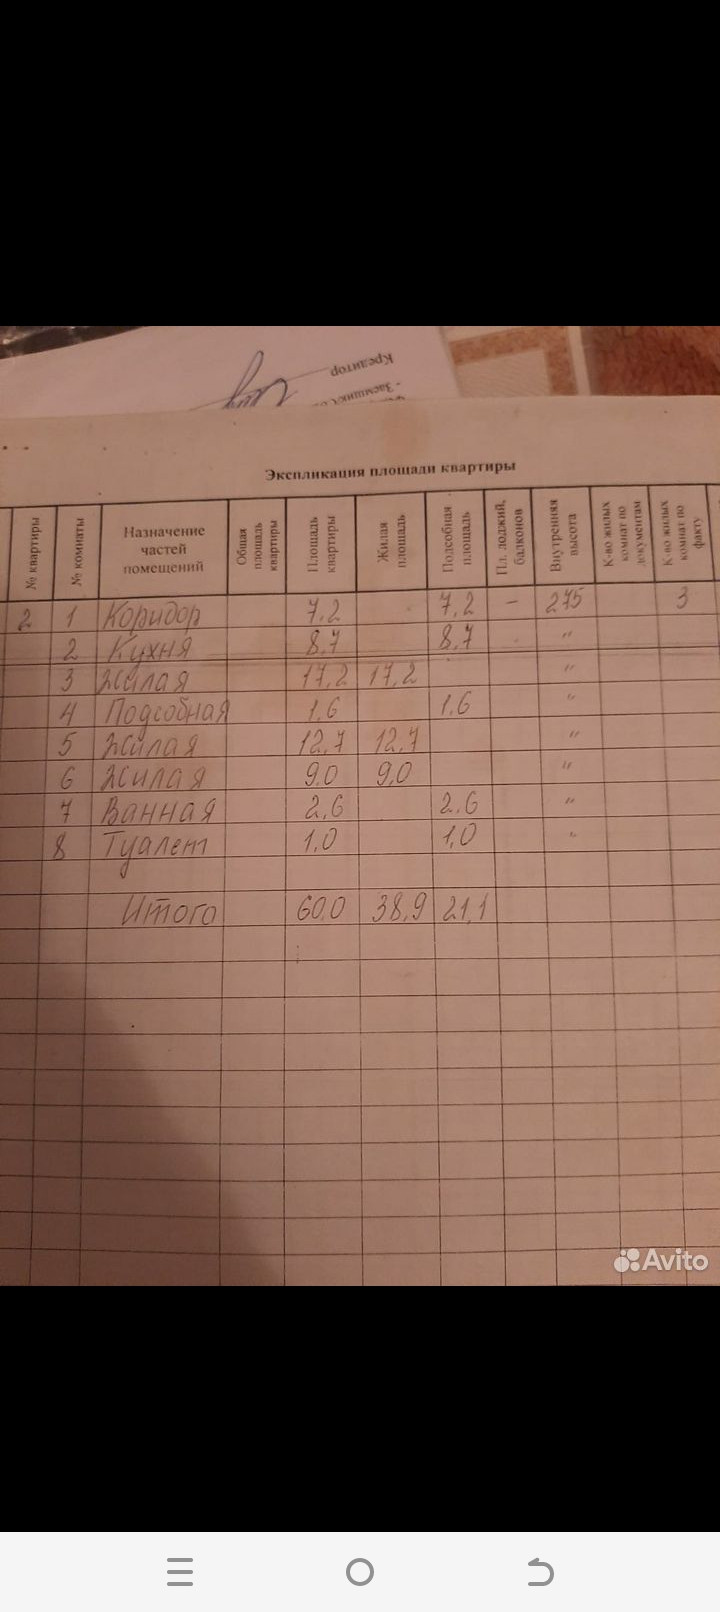 Кредитор
- Заемщик(со
Экспликация площади квартиры
№ квартиры
№ комнаты
Назначение частей помещений
Общая площадь квартиры
Площадь квартиры
Жилая площадь
Подсобная площадь
Пл. лоджий, балконов
Внутренняя высота
К-во жилых комнат по документам
К-во жилых комнат по факту
2 1 Коридор 7,2 7,2 – 275 3
2 Кухня 8,7 8,7 "
3 Жилая 17,2 17,2 "
4 Подсобная 1,6 1,6 "
5 Жилая 12,7 12,7 "
6 Жилая 9,0 9,0 "
7 Ванная 2,6 2,6 "
8 Туалет 1,0 1,0 "
Итого 60,0 38,9 21,1
Avito